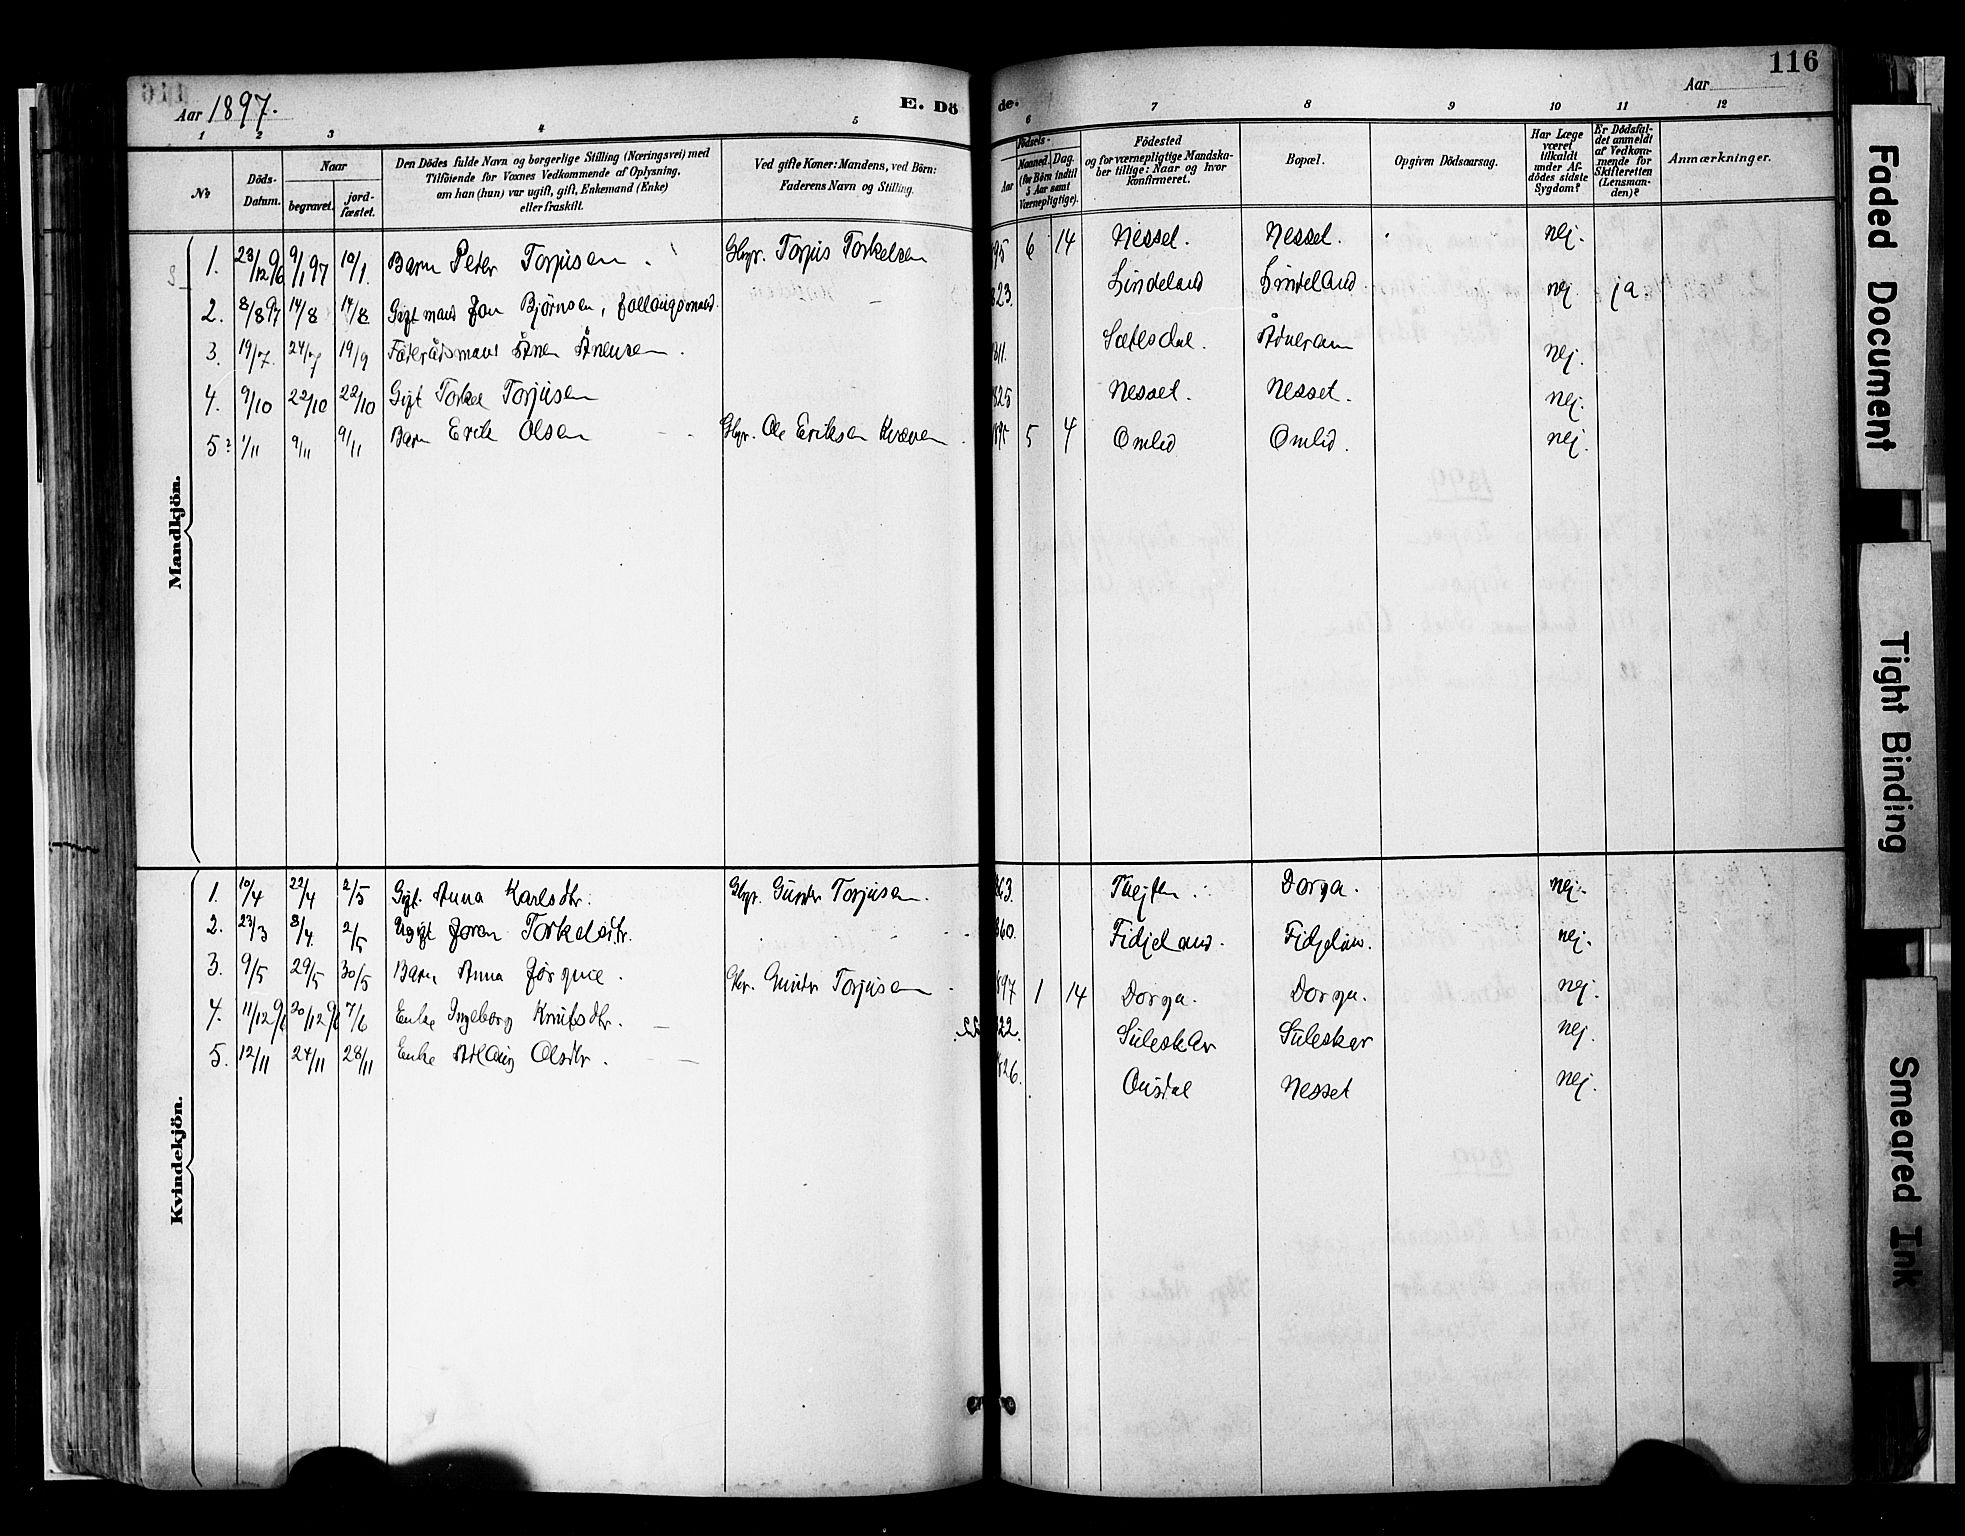 116
Aar 1897.
E. Dö
de.
Aar
1 2 3 4 5 6 7 8 9 10 11 12
No
Döds-Datum.
Naar
begravet.
jord-fæstet.
Den Dödes fulde Navn og borgerlige Stilling (Næringsvei) med
Tilföiende for Voxnes Vedkommende af Oplysning,
om han (hun) var ugift, gift, Enkemand (Enke)
eller fraskilt.
Ved gifte Koner: Mandens, ved Börn:
Faderens Navn og Stilling.
Födsels-
Aar
Maaned. Dag.
(for Börn indtil
5 Aar samt
Værnepligtige).
Födested
og for værnepligtige Mandska-
ber tillige: Naar og hvor
konfirmeret.
Bopæl.
Opgiven Dödsaarsag.
Har Læge
været
tilkaldt
under Af-
dödes sidste
Sygdom?
Er Dödsfal-
det anmeldt
af Vedkom-
mende for
Skifteretten
(Lensman-
den)?
Anmærkninger.
Mandkjön.
1. 23/12 96 9/1 97 10/1. Barn Peter Torjusen. Gbgr. Torjus Torkelsen 95 6 14 Nesset. Nesset. nej.
2. 8/8 97 14/8 17/8 Gift mand Jon Björnsen, 823. Lindeland Lindeland nej. ja
3. 19/7. 24/7 19/9 Föderådsmand Ånen Ånensen. 811. Sætesdal. Ådneram nej.
4. 9/10 22/10 22/10 Gift Torkel Torjusen 825 Nesset. Nesset. nej.
5 1/11 9/11 9/11 Barn Erik Olsen Gbgr. Ole Eriksen Kvæven. 895 5 4 Omlid Omlid. nej.
Kvindekjön.
1. 10/4 22/4 2/5 Gift. Anna Karlsdtr. Gbgr. Gunder Torjusen. 863. Dorga. nej.
2. 23/3 8/4. 2/5 Ugift Joren Torkelsdtr. 860. Fidjeland. Fidjeland. nej.
3. 9/5 29/5 30/5 Barn Anna Jörgine. Gbr. Gunder Torjusen 897 1 14 Dorga. Dorga. nej.
4. 11/12 96 30/12 96 7/6 Enke Ingeborg Knutsdtr. 822. Suleskar Suleskar nej.
5. 12/11 24/11 28/11 Enke Atlaug Olsdtr. 826. Ousdal Nesset nej.
Faded Document
Tight Binding
Smeared Ink